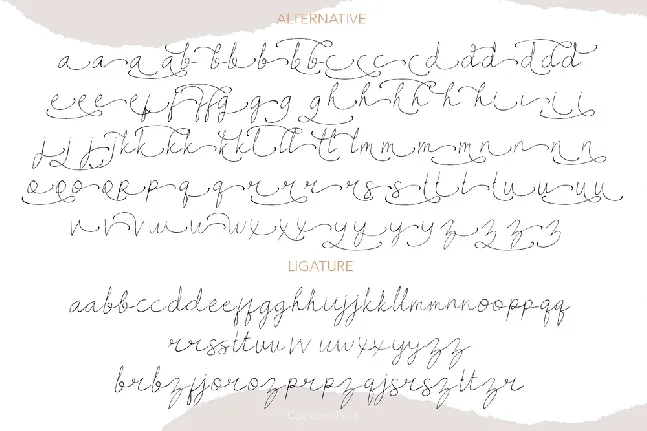 ALTERNATIVE
a a a a b b b b b b c c c c d d d d d d
e e e e f f f f g g g g g h h h h h h i i i i
j j j j k k k k k l l l t t l m m m m n n n n
o o o o p p q q r r r r s s s t t t t u u u u u
v v v v w w w x x x y y y y z z z z
LIGATURE
aabbccddeeffgghhiijjkkllmmnnooppqq
rrssttuuvv wwxxyyzz
brbzfjorozprpzqjsrszltzr